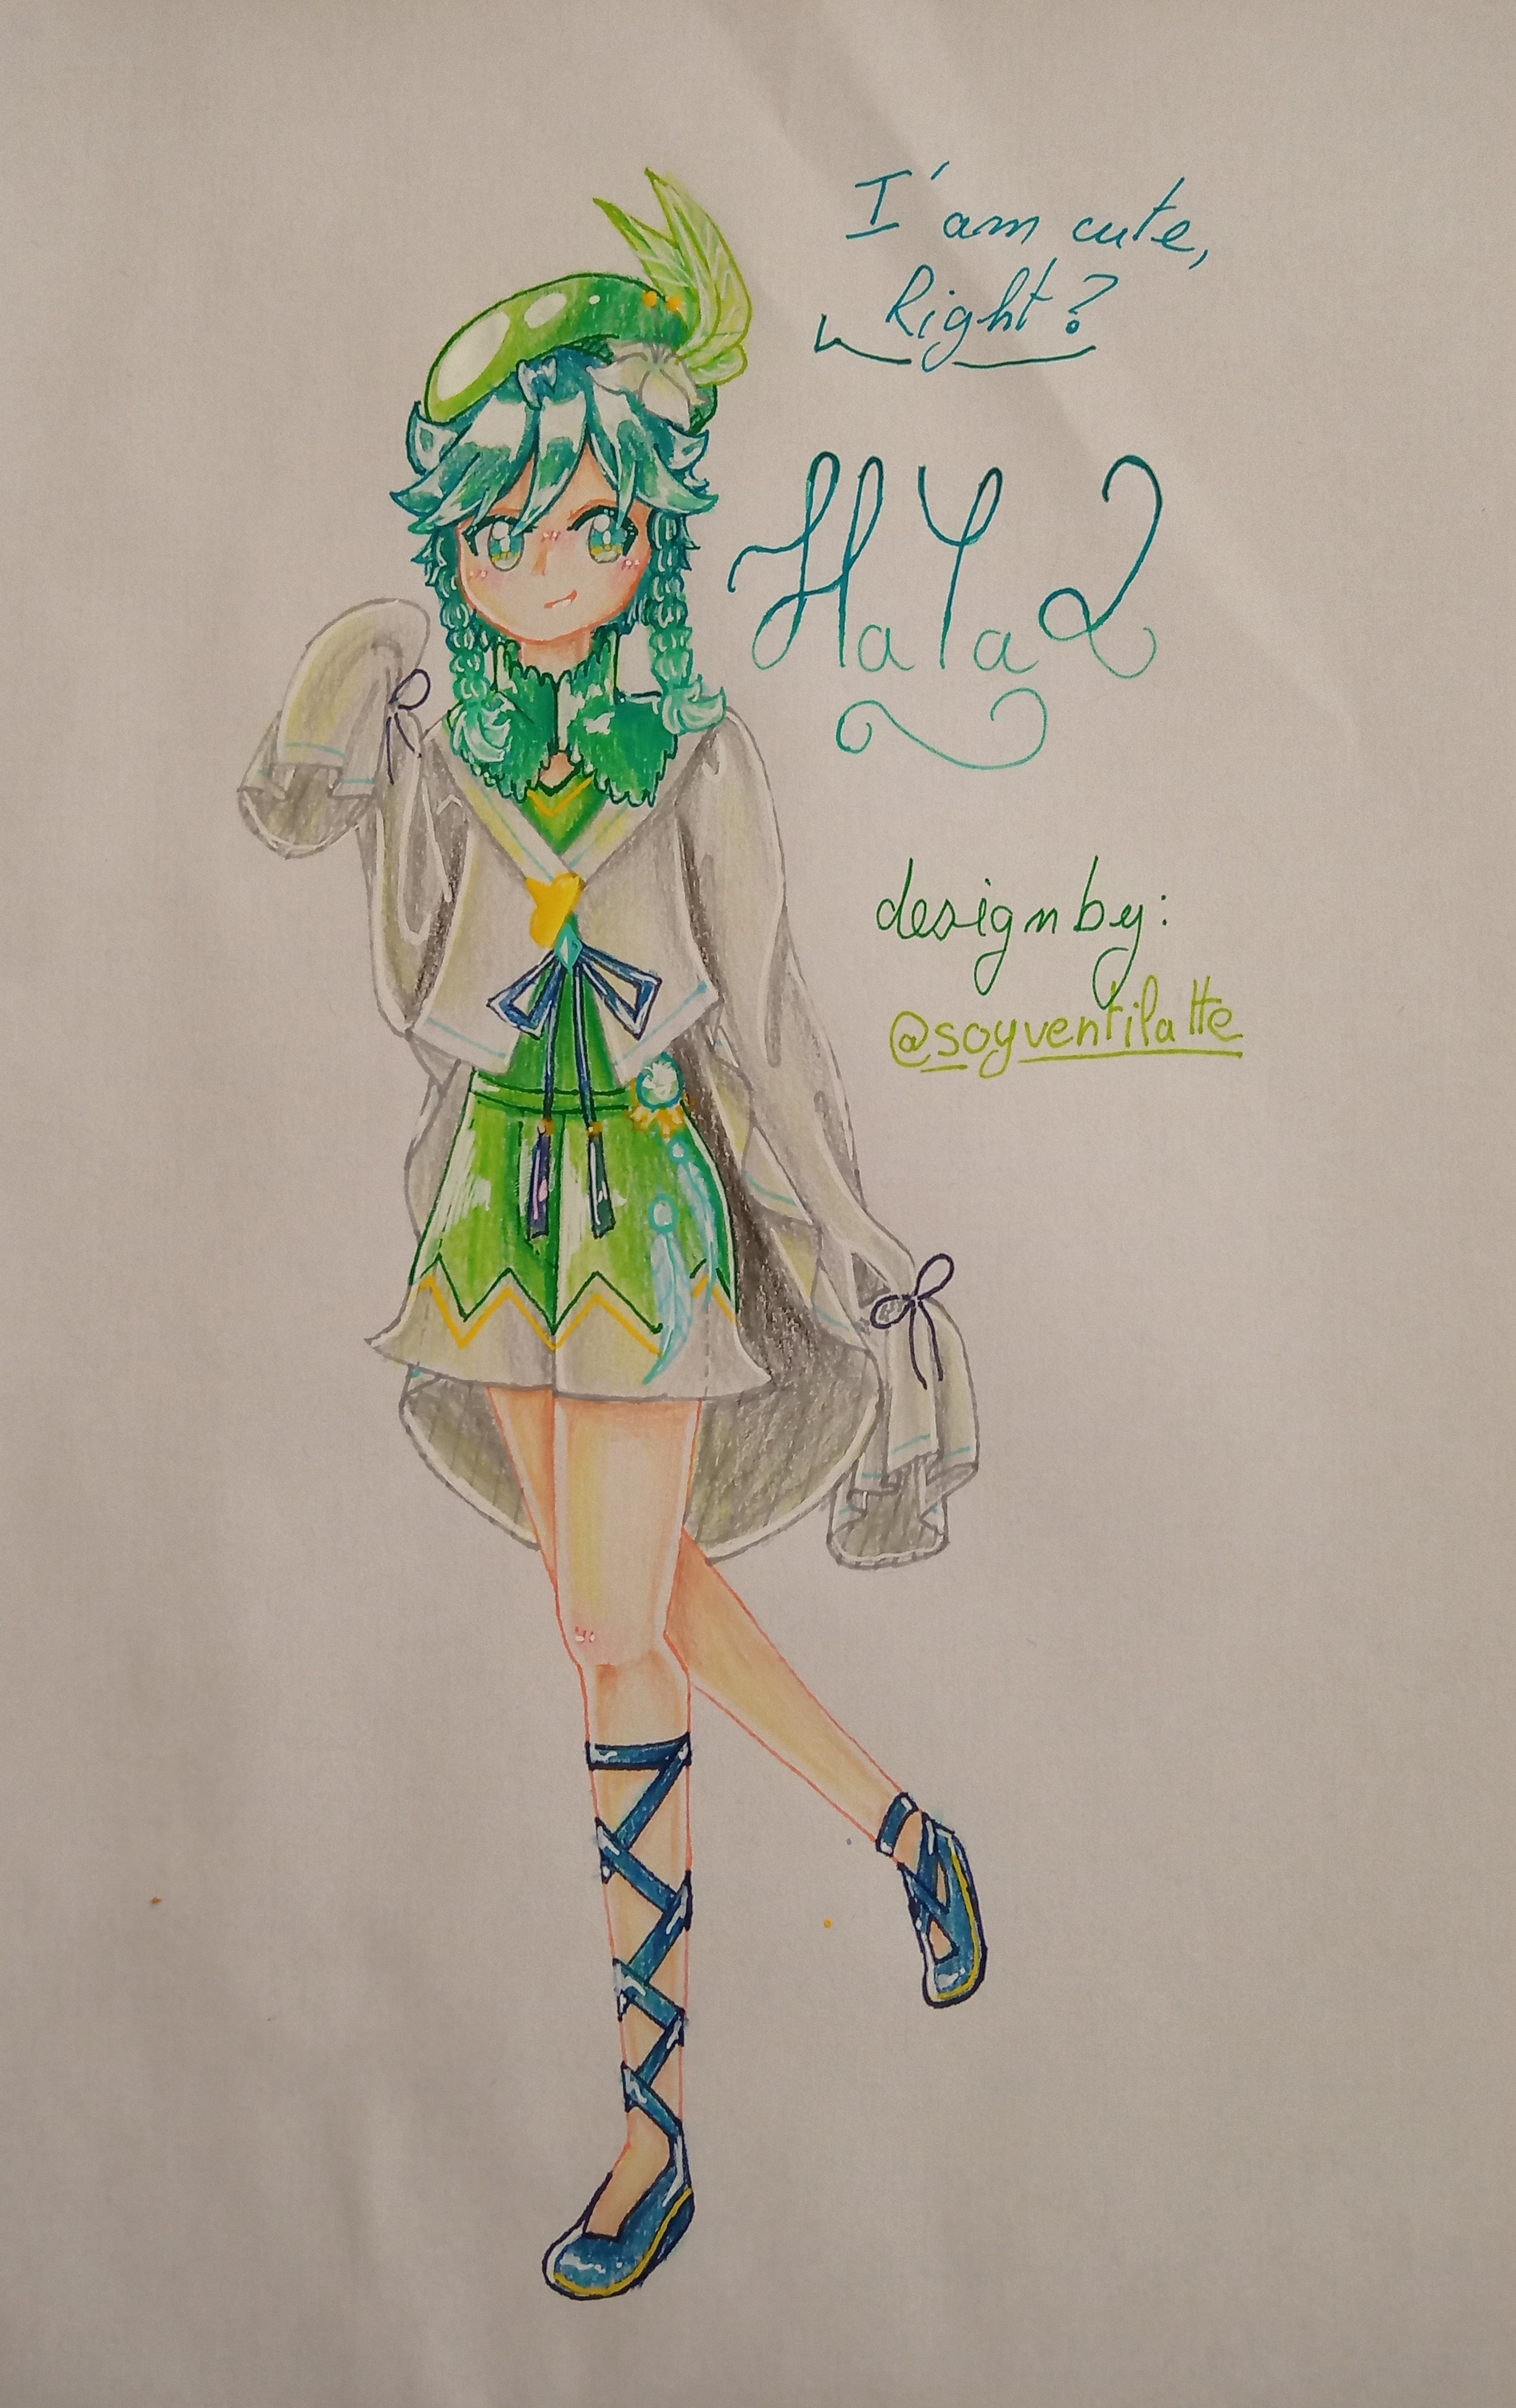 I'am cute,
Right?
HaYa2
design by:
@soyventilatte